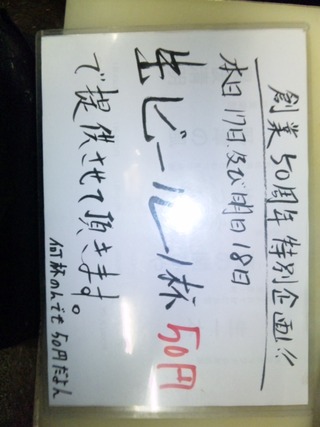 創業50周年特別企画!!
本日17日.及び明日18日
生ビール1杯50円
で提供させて頂きます。
何杯のんでも50円だよん